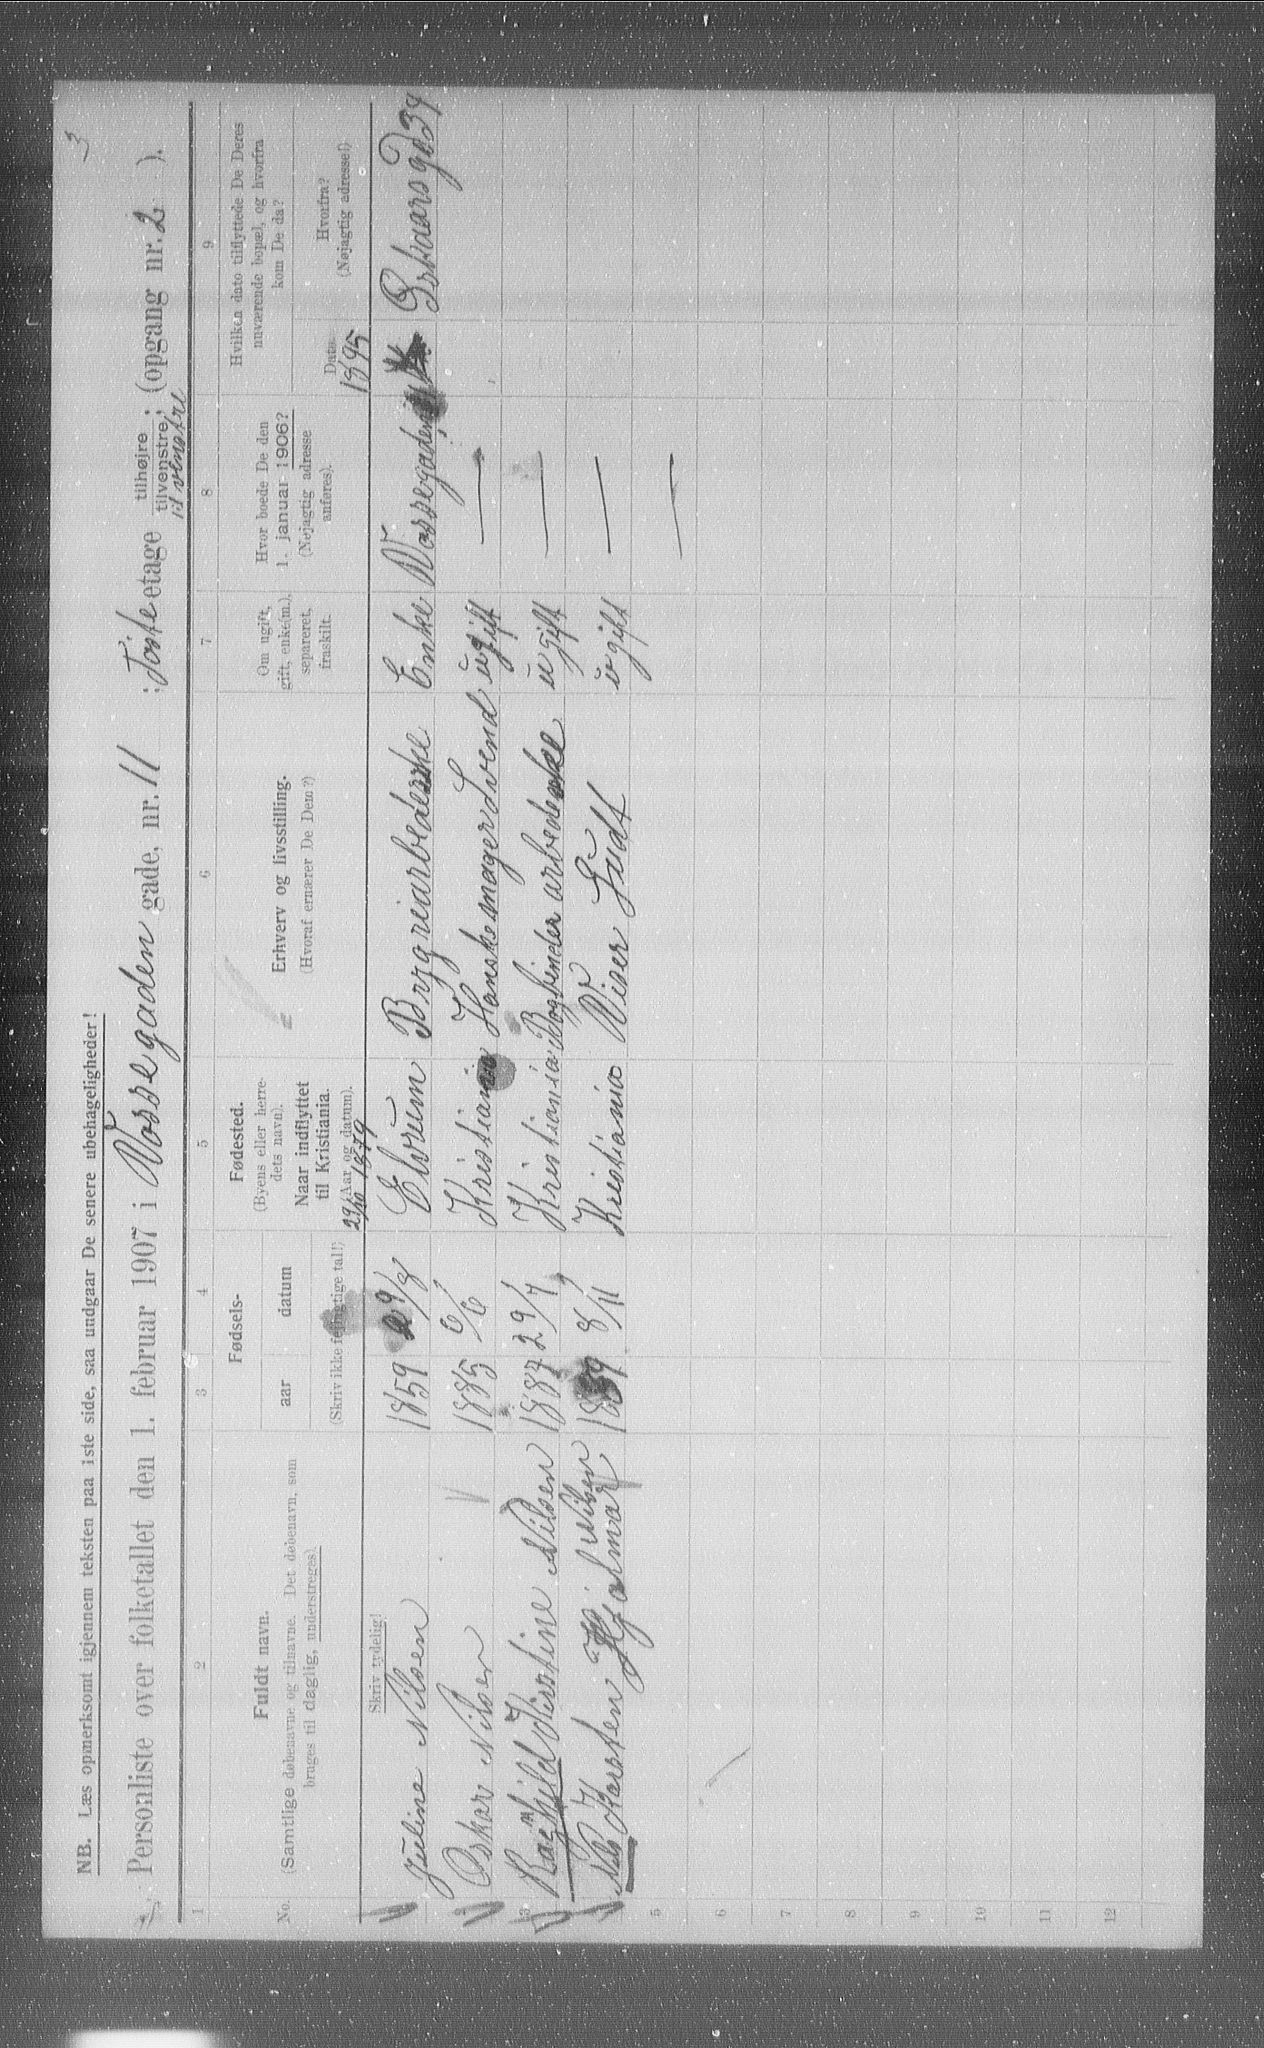 3
NB. Læs opmerksomt igjennem teksten paa 1ste side, saa undgaar De senere ubehageligheder!
Personliste over folketallet den 1. februar 1907 i Vossegaden gade, nr. 11 ; 1ste etage tilhøjre tilvenstre; (opgang nr. 2 ).
til venstre
1 2 3 4 5 6 7 8 9
No.
Fuldt navn.
(Samtlige døbenavne og tilnavne. Det døbenavn, som
bruges til daglig, understreges).
Fødsels-
aar datum
(Skriv ikke feilagtige tal!)
Fødested.
(Byens eller herre-
dets navn).
Naar indflyttet
til Kristiania.
(Aar og datum).
Erhverv og livsstilling.
(Hvoraf ernærer De Dem?)
Om ugift,
gift, enke(m.),
separeret,
fraskilt.
Hvor boede De den
1. januar 1906?
(Nøjagtig adresse
anføres).
Hvilken dato tilflyttede De Deres
nuværende bopæl, og hvorfra
kom De da?
Dato.
Hvorfra?
(Nøjagtig adresse!)
Skriv tydelig!
29/10 1879 1895
Juline Nilsen 1859 29/8 Elvrum Brygriarbederske Enke Vossegaden 11 Oskarsgd 39
Oskar Nilsen 1885 6/6 Kristiania Hanskemager Svend ugift —
3 Raghild Kirstine Nilsen 1887 29/7 Kristiania Bogbinder arbederske ugift —
Nils Karsten Hjalmar Nilsen 1889 8/11 Kristiania Viser Gudt ugift —
5 —
6
7
8
9
10
11
12